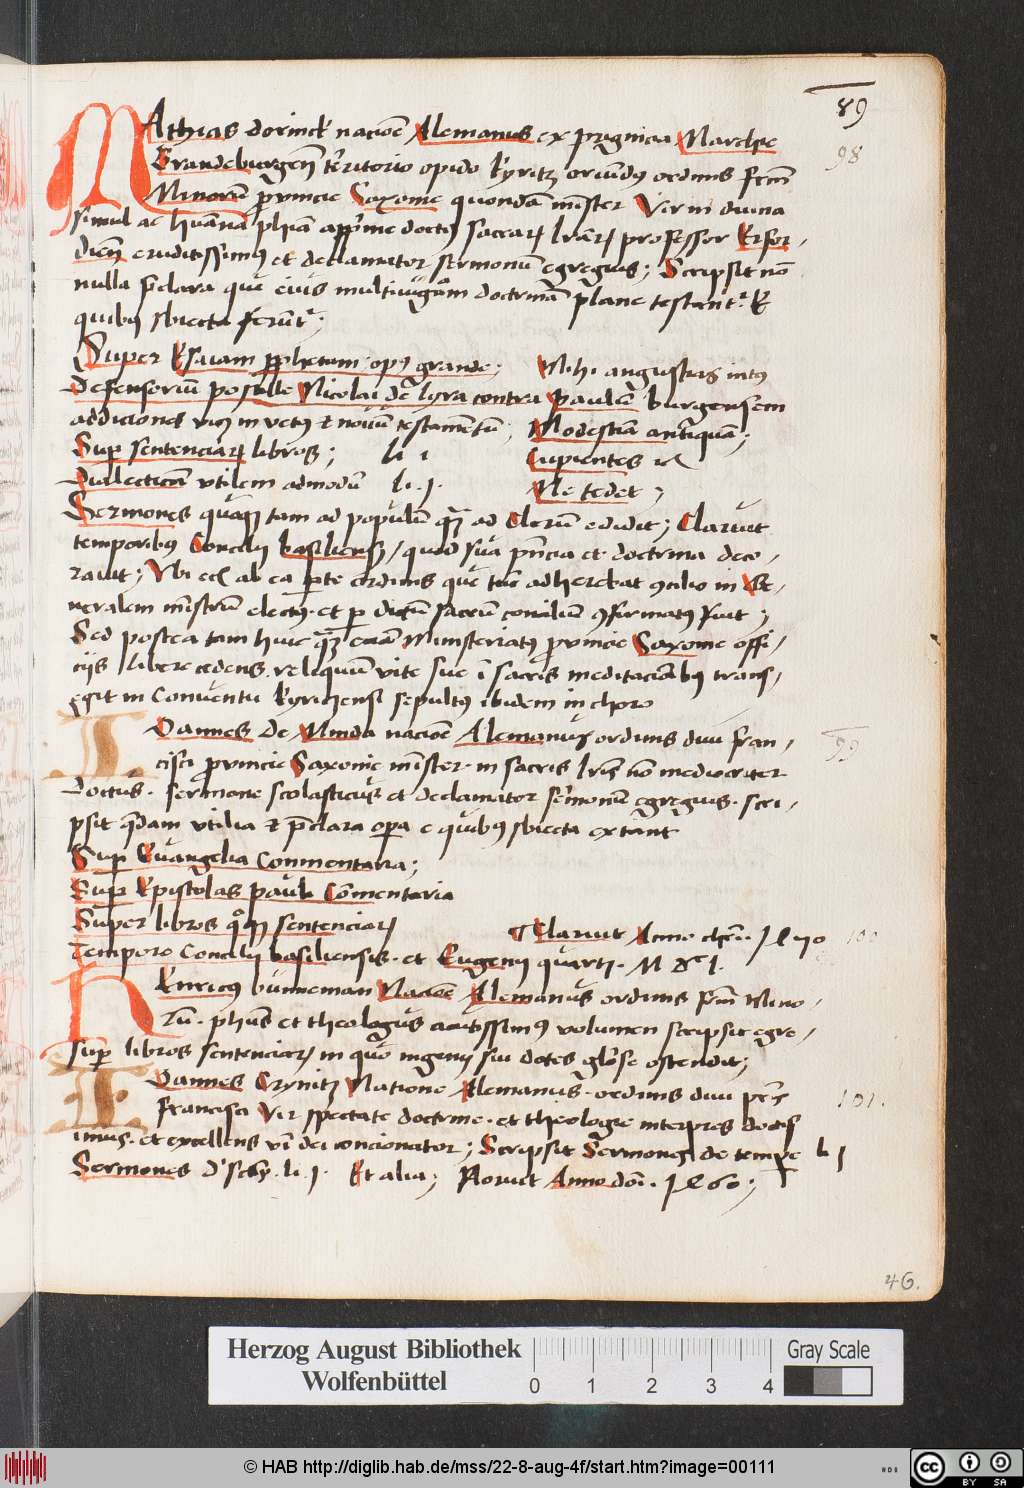 89
98
MAthias dorinck nacōe Alemanus ex prignicia Marchie
Brandeburgeñ territorio opido kyritz oriūdus ordinis frm̄
Minorū prouincie Saxonie quondā minister Vir in diuina
simul ac huāna phīa apprime doctus sacrarꝝ lrārꝝ professor Erfor-
dieñ eruditissimꝯ et declamator sermonū egregius; Scripsit nō
nulla preclara que eius multiuagam doctrinā plane testantr E
quibus sbiecta ferūtr;
Super Esaiam prophetam opꝯ grande; Mihi angustijs intus
Defensoriū postille Nicolai de lyra contra paulū burgensem
addiciones in vetꝯ et nouū testamentū; Modestiā antiquā;
Sup sentenciarꝝ libros; li 1 Cupientes
Dialecticā vtilem admodū li. j. Ne tedet;
Sermones quoqꝫ tam ad populū quā ad Clerū edidit; Claruit
temporibus Concilij basiliensis, quod sua pñcia et doctrina deco-
rauit; Vbi ab ea parte ordinis que tūc adherebat cōsilio in Ge-
neralem ministrū electꝯ. et per dictū sacrū conciliū cōfirmatus fuit;
Sed postea tam huic quā eciā Ministeriatus prouincie Saxonie offi-
cijs libere cedens reliquum vite sue ī sacris meditacionibꝯ trans-
egit in Conuentu kyriczensi sepultus ibidem in choro
IOannes de Minda nacōe Alemanus ordinis diui fran-
cisci prouincie Saxonie minister. in sacris lrīs nō mediocriter
doctus. sermone scolasticus et declamator sermonū egregius. scri-
psit quedam vtilia et preclara opera e quibus sbiecta extant
99
Sup Euangelia Commentaria;
Sup Epistolas pauli Cōmentaria
Super libros qͦꝫ sentenciarꝝ Claruit Anno chrī. 1470
100
Tempore Concilij basiliensis. et Eugenij quarti.
HEnricus bunneman Nacōe Alemanus ordinis frm̄ Mino-
rū. phūs et theologus acutissimꝯ volumen scripsit egre-
sup libros sentenciarꝝ in quo ingenij sui dotes glōse ostendit;
IOannes Crynitz Natione Alemanus. ordinis diui prīs
101.
francisci Vir spectate doctrine. et theologie interpres doctis
imus. et excellens vī dei concionator; Scripsit Sermones de tempe li j
Sermones d' sctīs. li. j. Et alia; floruit Anno dōi. 1460;
46.
Herzog August Bibliothek
Wolfenbüttel
0 1 2 3 4
Gray Scale
© HAB http://diglib.hab.de/mss/22-8-aug-4f/start.htm?image=00111
HAB
cc BY SA